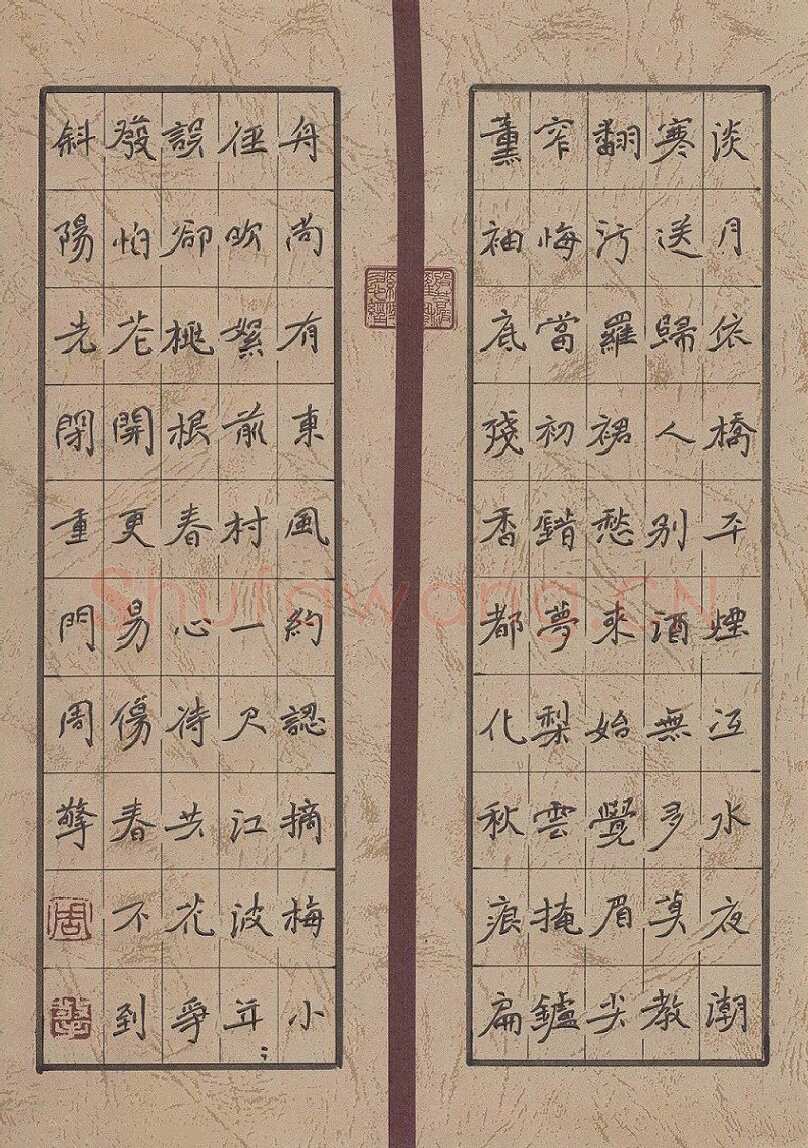 淡月依橋平煙沍水夜潮
寒送歸人別酒無多莫教
翻汚羅裙愁來始覺眉尖
窄悔當初錯夢梨雲掩鑪
薰袖底殘香都化秋痕扁
舟尚有東風約認摘梅小
徑吹絮前村一尺江波年〻
誤卻桃根春心待共花爭
發怕花開更易傷春不到
斜陽先閉重門周擎
周
擎
Shufawang.CN